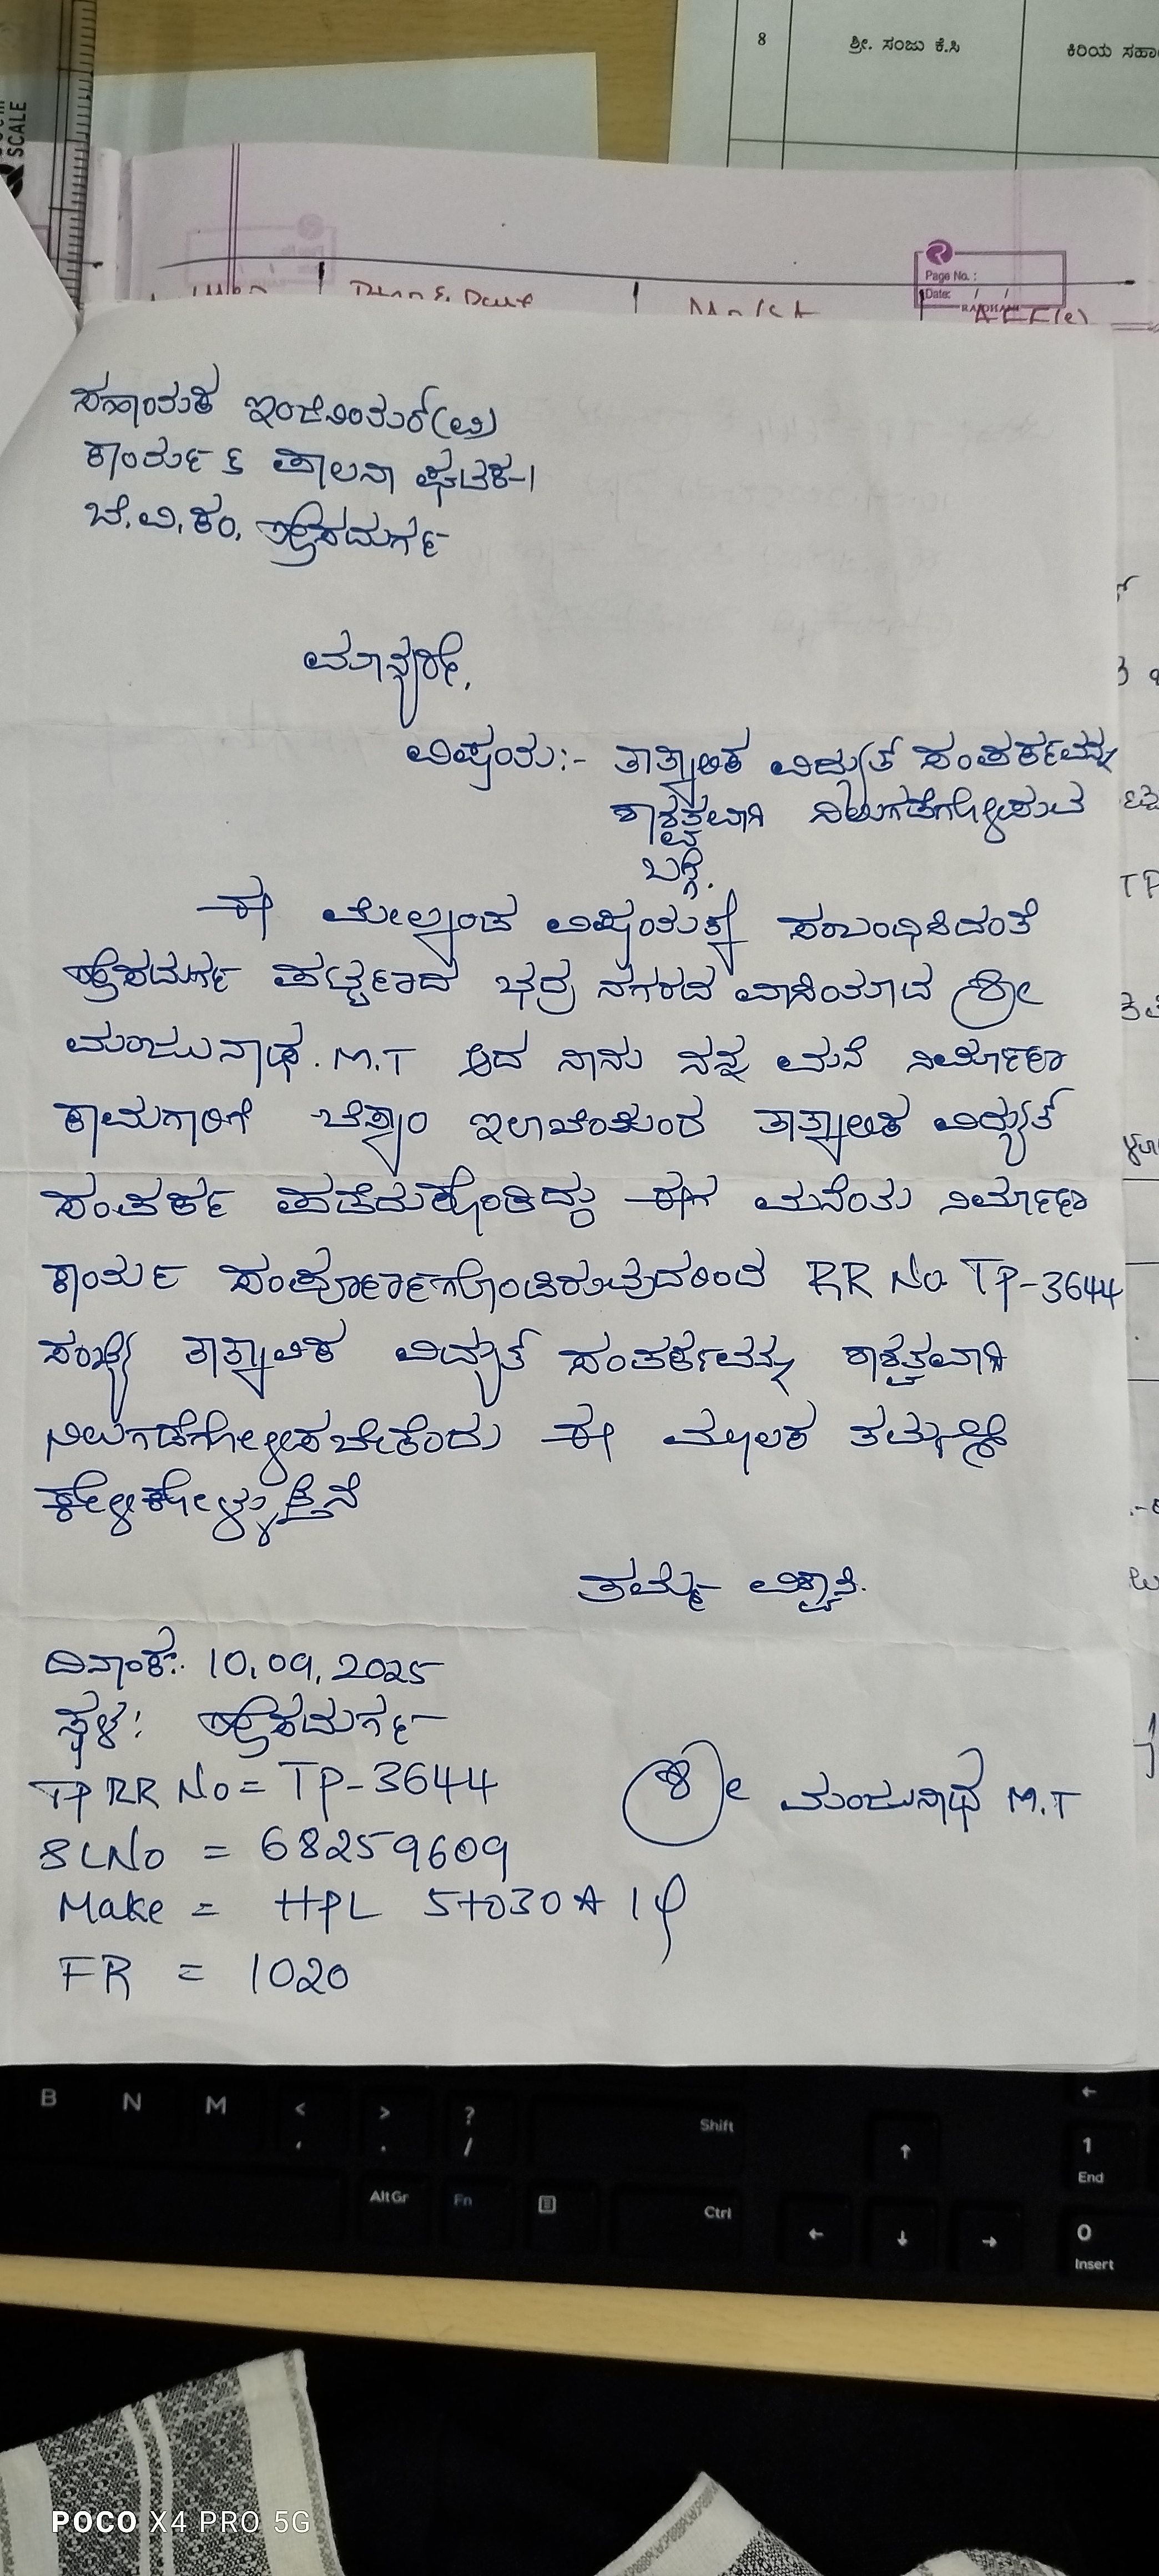 SCALE
8 ಶ್ರೀ. ಸಂಜು ಕೆ.ಸಿ ಕಿರಿಯ ಸಹಾ
Page No.:
Date: / /
ಸಹಾಯಕ ಇಂಜಿನಿಯರ್(ವಿ)
ಕಾರ್ಯ & ಪಾಲನಾ ಘಟಕ-1
ಬೆ.ವಿ.ಕಂ. ಹೊಸದುರ್ಗ
ಮಾನ್ಯರೇ,
ವಿಷಯ:- ತಾತ್ಕಾಲಿಕ ವಿದ್ಯುತ್ ಸಂಪರ್ಕವನ್ನು
ಶಾಶ್ವತವಾಗಿ ನಿಲುಗಡೆಗೋಳಿಸುವ
ಬಗ್ಗೆ.
ಈ ಮೇಲ್ಕಂಡ ವಿಷಯಕ್ಕೆ ಸಂಬಂಧಿಸಿದಂತೆ
ಹೊಸದುರ್ಗ ಪಟ್ಟಣದ ಭದ್ರ ನಗರದ ವಾಸಿಯಾದ ಶ್ರೀ
ಮಂಜುನಾಥ. M.T ಆದ ನಾನು ನನ್ನ ಮನೆ ನಿರ್ಮಾಣ
ಕಾಮಗಾರಿಗೆ ಬೆಸ್ಕಾಂ ಇಲಾಖೆಯಿಂದ ತಾತ್ಕಾಲಿಕ ವಿದ್ಯುತ್
ಸಂಪರ್ಕ ಪಡೆದುಕೊಂಡಿದ್ದು ಈಗ ಮನೆಯ ನಿರ್ಮಾಣ
ಕಾರ್ಯ ಸಂಪೂರ್ಣಗೊಂಡಿರುವುದರಿಂದ RR No TP-3644
ಸಂಖ್ಯೆ ತಾತ್ಕಾಲಿಕ ವಿದ್ಯುತ್ ಸಂಪರ್ಕವನ್ನು ಶಾಶ್ವತವಾಗಿ
ನಿಲುಗಡೆಗೋಳಿಸಬೇಕೆಂದು ಈ ಮೂಲಕ ತಮ್ಮಲ್ಲಿ
ಕೇಳಿಕೋಳ್ಳುತ್ತೆನೆ
ತಮ್ಮ ವಿಶ್ವಾಸಿ.
ದಿನಾಂಕ:. 10.09.2025
ಸ್ಥಳ: ಹೊಸದುರ್ಗ
TP RR No = TP-3644
ಶ್ರೀ ಮಂಜುನಾಥ M.T
SLNo = 68259609
Make = HPL 5to30A 1φ
FR = 1020
B N M < , > . ? / Shift ↑ ← 1 End
AltGr Fn Ctrl ← ↓ → 0 Insert
POCO X4 PRO 5G